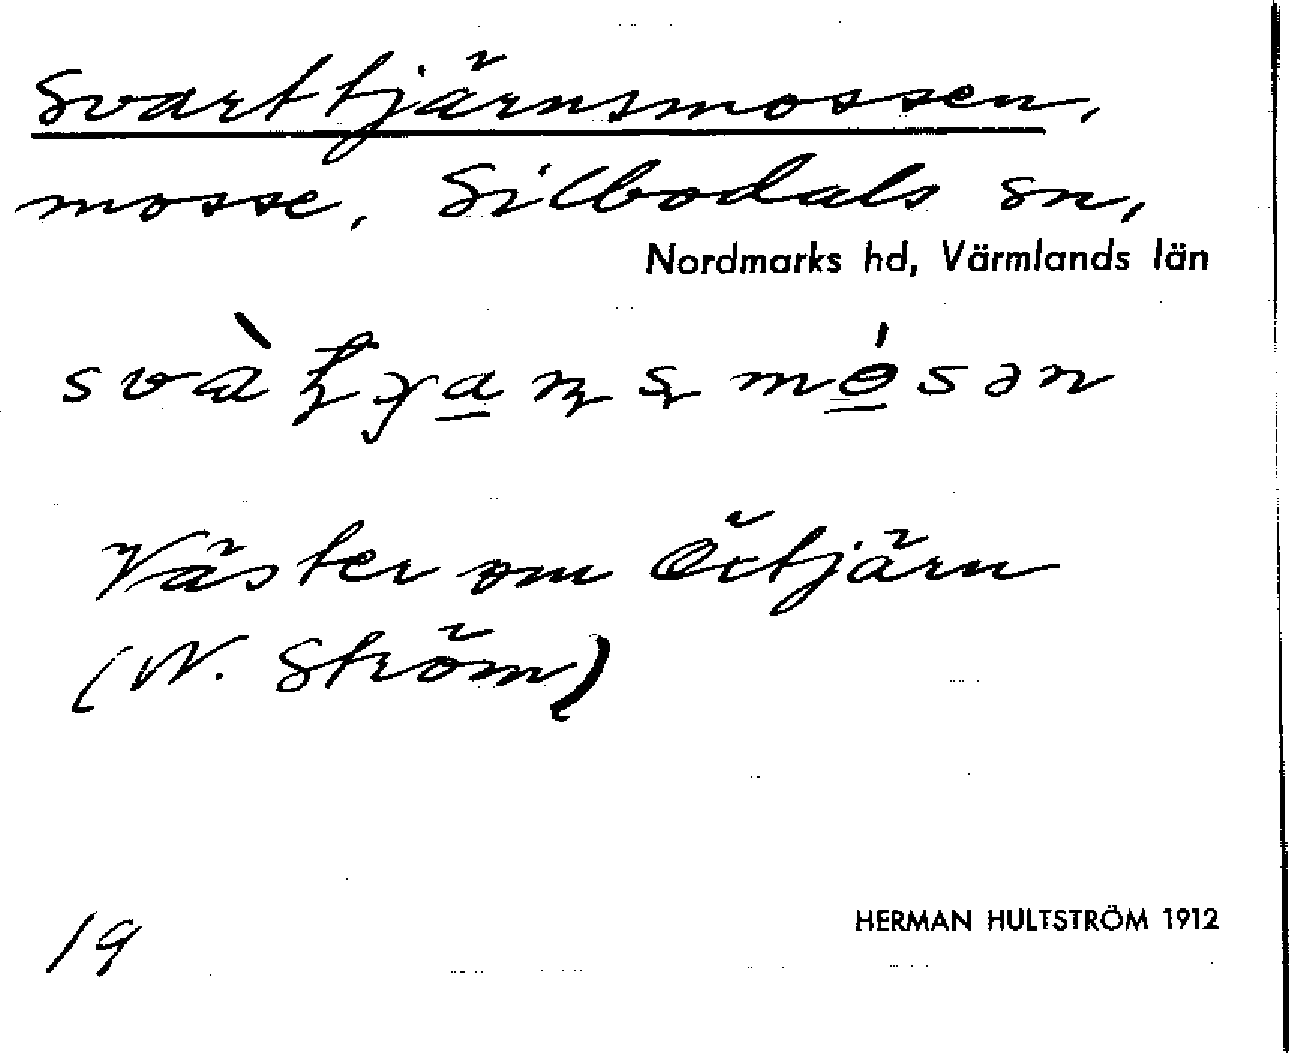 Svarttjärnsmossen,
mosse, Silbodals sn,
Nordmarks hd, Värmlands län
Väster om Örtjärn
(W. Ström)
19
HERMAN HULTSTRÖM 1912